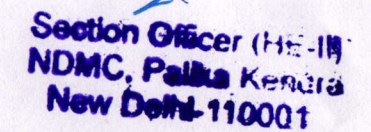 Section Officer (HE-II)
NDMC, Palika Kendra
New Delhi-110001